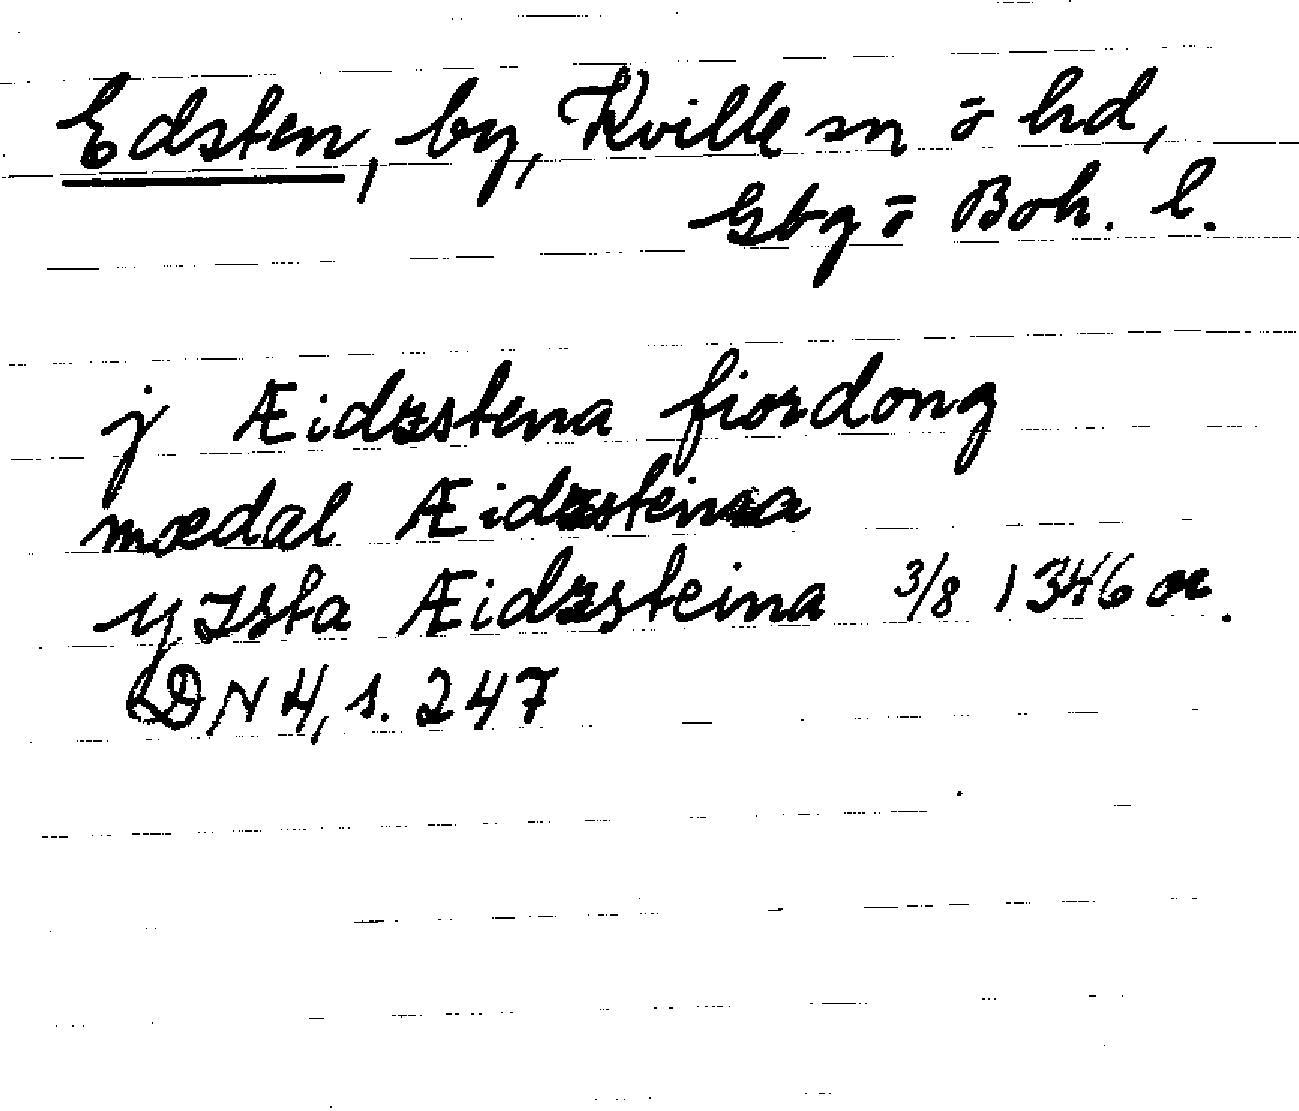 Edsten, by, Kville sn o hd,
Gbg o Boh. l.
j Æidzstena fiordong
mœdal Æidzsteina
yzsta Æidzsteina 3/8 1346 or.
DN 4, s. 247